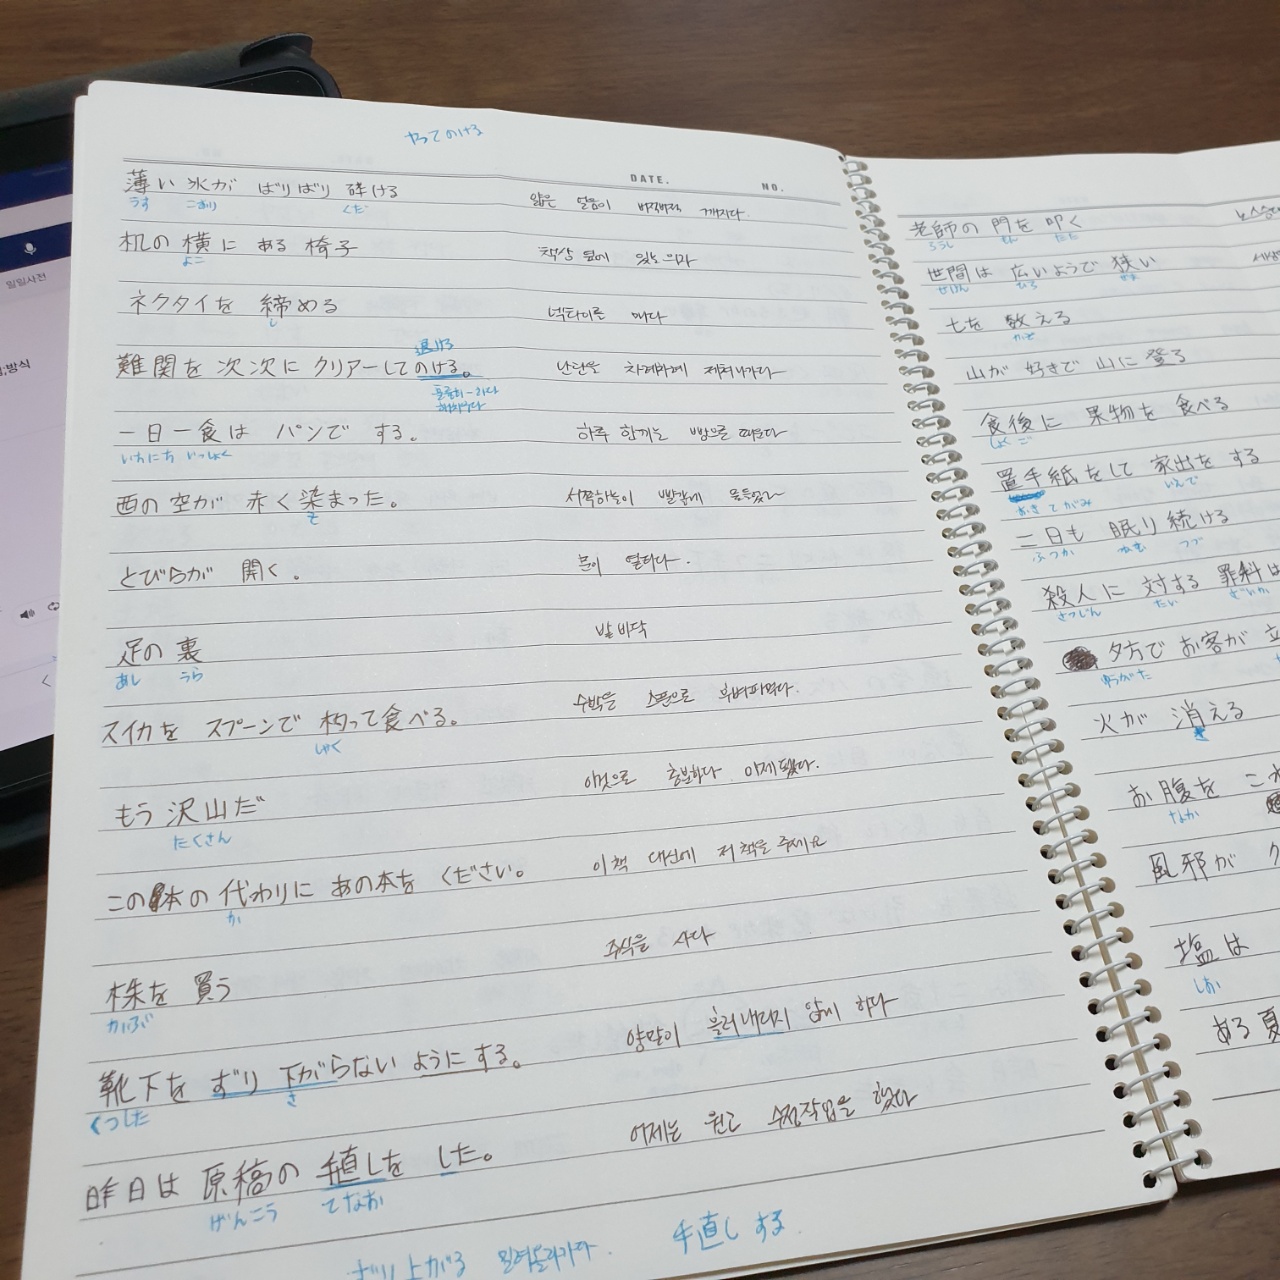 밀밀사전
방식
やってのける
DATE. NO.
薄い 氷が ばりばり 砕ける 얇은 얼음이 바작바작 깨지다.
うす こおり くだ
机の 横に ある 椅子 책상 옆에 있는 의자
よこ
ネクタイを 締める 넥타이를 매다
し
退ける
難関を 次次に クリアーして のける。 난관을 차례차례 제쳐나가다
一日一食は パンで する。 하루 한끼는 빵으로 때운다
いちにち いっしょく
西の 空が 赤く 染まった。 서쪽하늘이 빨갛게 물들었다
そ
とびらが 開く。 문이 열리다.
足の 裏 발바닥
あし うら
スイカを スプーンで 杓って 食べる。 수박을 스푼으로 퍼먹다.
しゃく
もう 沢山だ 이것으로 충분하다 이제 됐다.
たくさん
この本の 代わりに あの本を ください。 이 책 대신에 저 책을 주세요
か
株を 買う 주식을 사다
かぶ
靴下を ずり 下がらない ようにする。 양말이 흘러내리지 않게 하다
くつした さ
昨日は 原稿の 手直しを した。 어제는 원고 수정작업을 했다
げんこう てなお
ずり上がる 밀려올라가다. 手直し する.
老師の 門を 叩く
ろうし もん たた
世間は 広いようで 狭い
せけん ひろ せま
七を 数える
かぞ
山が 好きで 山に 登る
食後に 果物を 食べる
しょくご
置手紙をして 家出を する
おきてがみ いえで
二日も 眠り 続ける
ふつか ねむ つづ
殺人に 対する 罪科は
さつじん たい ざいか
夕方で お客が 立
ゆうがた
火が 消える
き
お腹を こわ
なか
風邪が
塩は
しお
ある夏